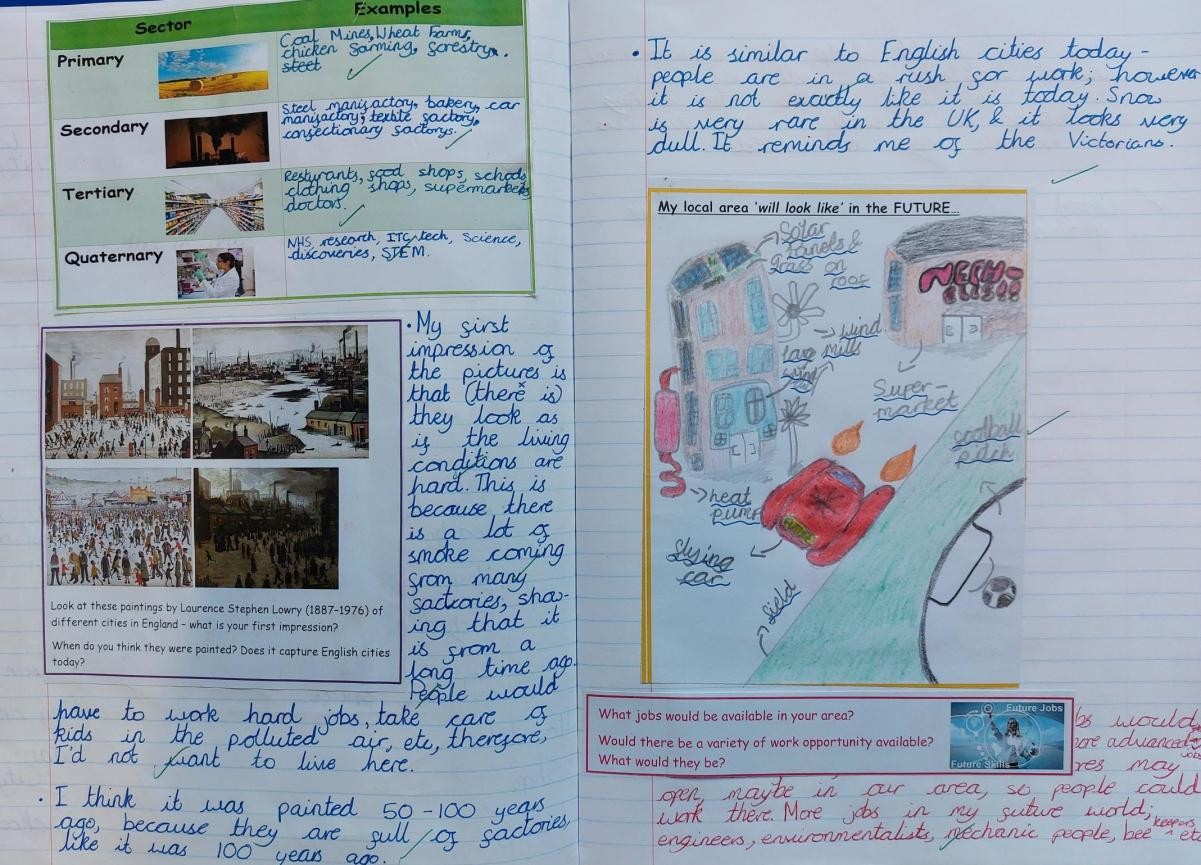 Sector Examples
Primary
Coal Mines, Wheat Farms,
chicken farming, forestry.
steel
Secondary
Steel manifactory, bakery, car
manifactory, textile factory,
confectionary factorys.
Tertiary
Resturants, food shops, schools
clothing shops, supermarkets
doctors.
Quaternary
NHS, research, ITC, tech, Science,
discoveries, STEM.
Look at these paintings by Laurence Stephen Lowry (1887-1976) of
different cities in England – what is your first impression?
When do you think they were painted? Does it capture English cities
today?
• My first
impression of
the pictures is
that (there is)
they look as
if the living
conditions are
hard. This is
because there
is a lot of
smoke coming
from many
factories, show-
ing that it
is from a
long time ago.
People would
have to work hard jobs, take care of
kids in the polluted air, etc, therefore,
I'd not want to live here.
• I think it was painted 50-100 years
ago, because they are full of factories,
like it was 100 years ago.
• It is similar to English cities today -
people are in a rush for work; however
it is not exactly like it is today. Snow
is very rare in the UK, & it looks very
dull. It reminds me of the Victorians.
My local area 'will look like' in the FUTURE...
Solar
panels &
grass on
roof
wind
mills
Super-
market
football
pitch
heat
pump
flying
car
field
What jobs would be available in your area?
Would there be a variety of work opportunity available?
What would they be?
Future Jobs
Future Skills
would
more advanced
may
open, maybe in our area, so people could
work there. More jobs in my future world;
engineers, environmentalists, mechanic people, bee keepers etc